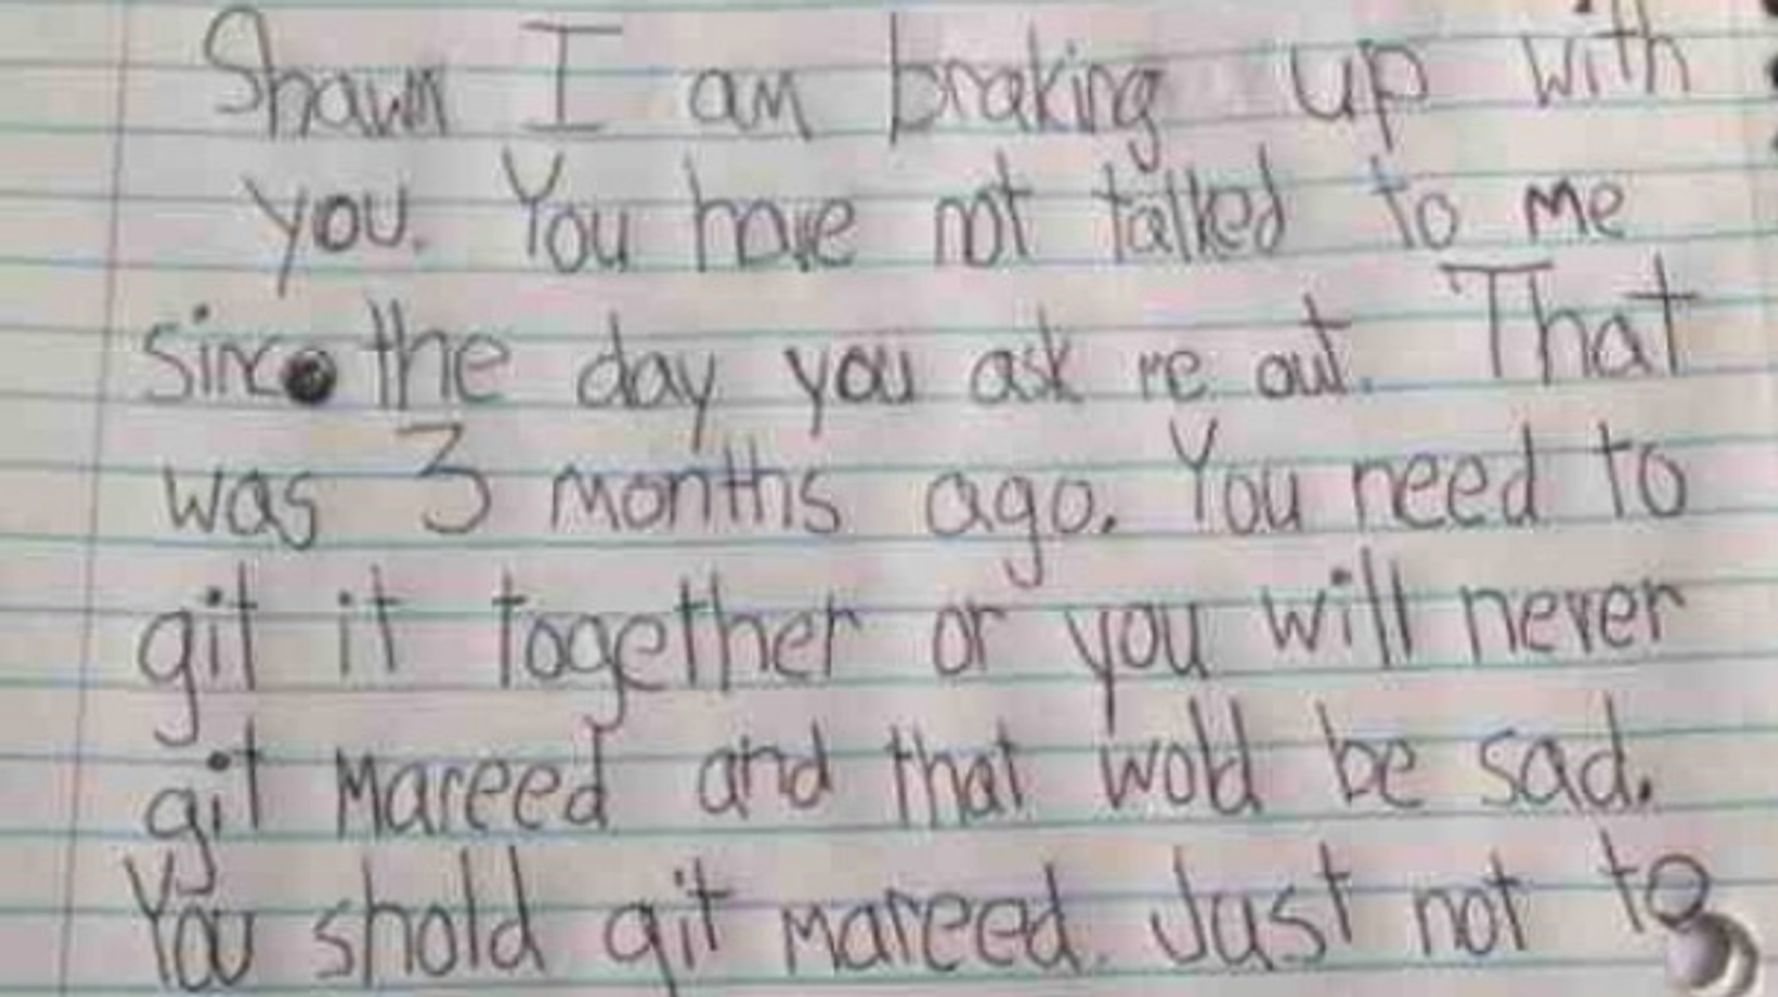 Shawn I am braking up with
you. You have not talked to me
sinc the day you ask me out. That
was 3 months ago. You need to
git it together or you will never
git mareed and that wold be sad.
You shold git mareed. Just not to